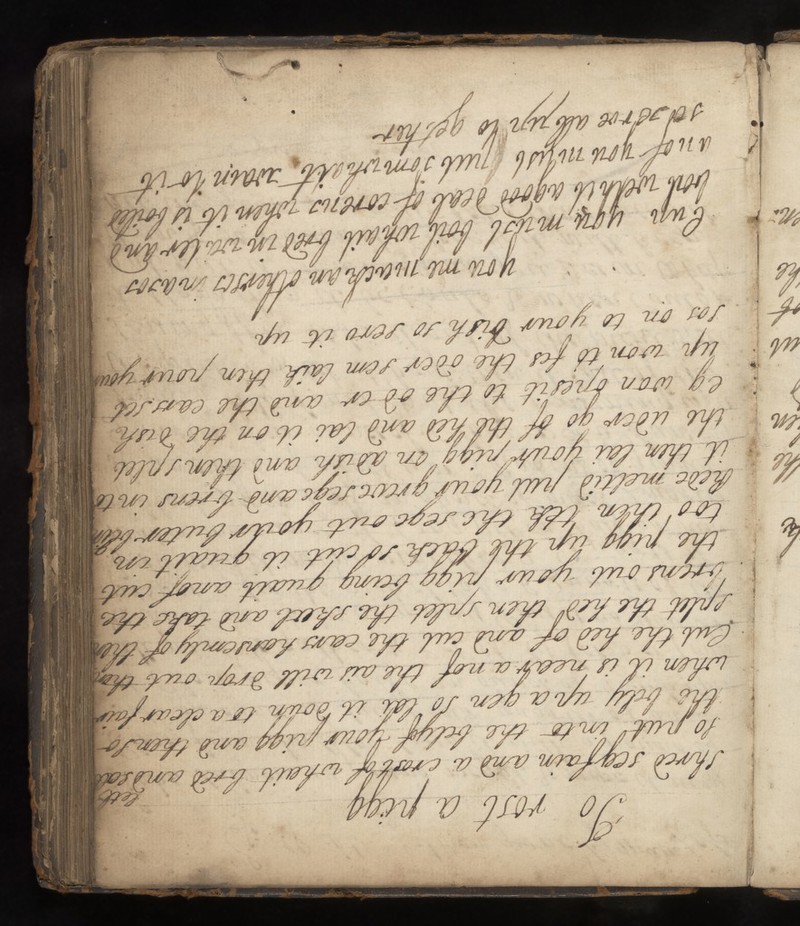 To rost a pigg
shred seg fain and a crost of whait bred and sa
lets
so put into the bely of your pigg and then so
the bely up a gen so lai it doun to a clear fair
when it is near a nof the ais will drop out than
Cut the hed of and cut the ears hansomly of then
splet the hed then splet the skul and take the
brens out your pigg being quait anof cut
the pigg up the back so cut it quait in
too then tek the sege out your buter ben
redc melted put your grover sege and brens into
it then lai your pigg on a dish and then splet
the uder go of the hed and lai it on the dish
eg won opesit to the oder and the ears set
up won to fes the oder sem laik then pour your
sos on to your dish so serv it up
you me mach an otherses in a sos
Cun you must boil whait bred in water and
boil with it a good deal of corens when it is boiled
anof you must put som whait wain to it
so serve all up to gether